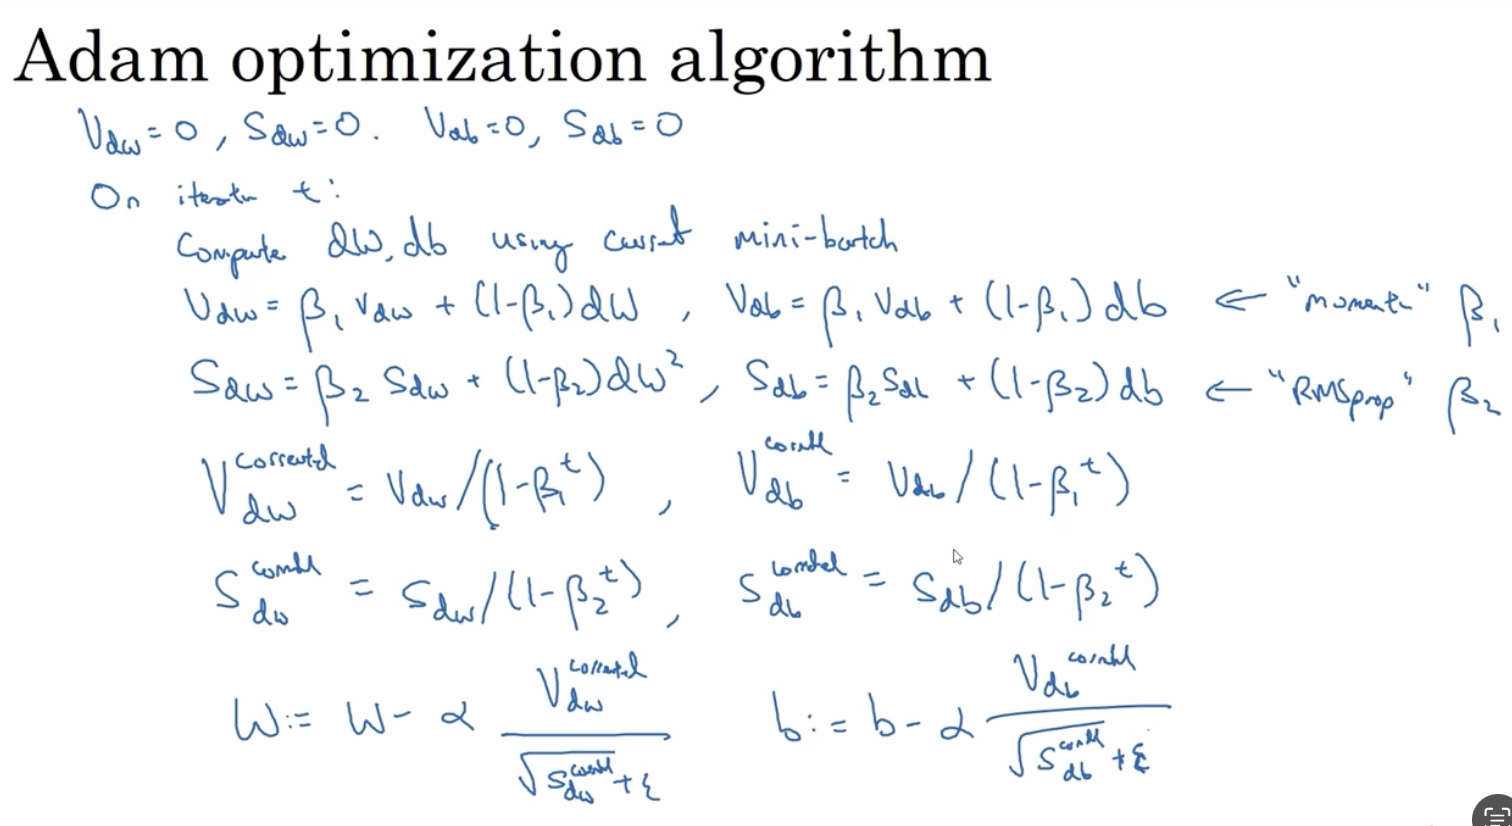 Adam optimization algorithm
V_dw = 0, S_dw = 0. V_db = 0, S_db = 0
On iteratn t:
Compute dW, db using current mini-batch
V_dw = β₁ V_dw + (1-β₁) dW , V_db = β₁ V_db + (1-β₁) db ← "moment" β₁
S_dw = β₂ S_dw + (1-β₂) dW² , S_db = β₂ S_db + (1-β₂) db ← "RMSprop" β₂
V_dw^corrected = V_dw/(1-β₁^t) , V_db^corrected = V_db/(1-β₁^t)
S_dw^corrected = S_dw/(1-β₂^t) , S_db^corrected = S_db/(1-β₂^t)
W := W - α V_dw^corrected / √S_dw^corrected + ε b := b - α V_db^corrected / √S_db^corrected + ε